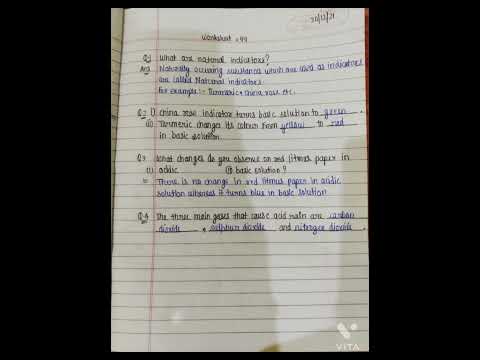 22/12/21
Worksheet - 49
Q.1 What are natural indicators?
Ans Naturally occuring substances which are used as indicators
are called Natural indicators.
For example :- Turmeric, china rose etc.
Q.2 (i) China rose indicator turns basic solution to green.
(ii) Turmeric changes its colour from yellow to red
in basic solution.
Q.3 What changes do you observe on red litmus paper in
(i) acidic (ii) basic solution?
There is no change in red litmus paper in acidic
solution whereas it turns blue in basic solution
Q.4 The three main gases that cause acid rain are carbon
dioxide, sulphur dioxide and nitrogen dioxide.
VITA